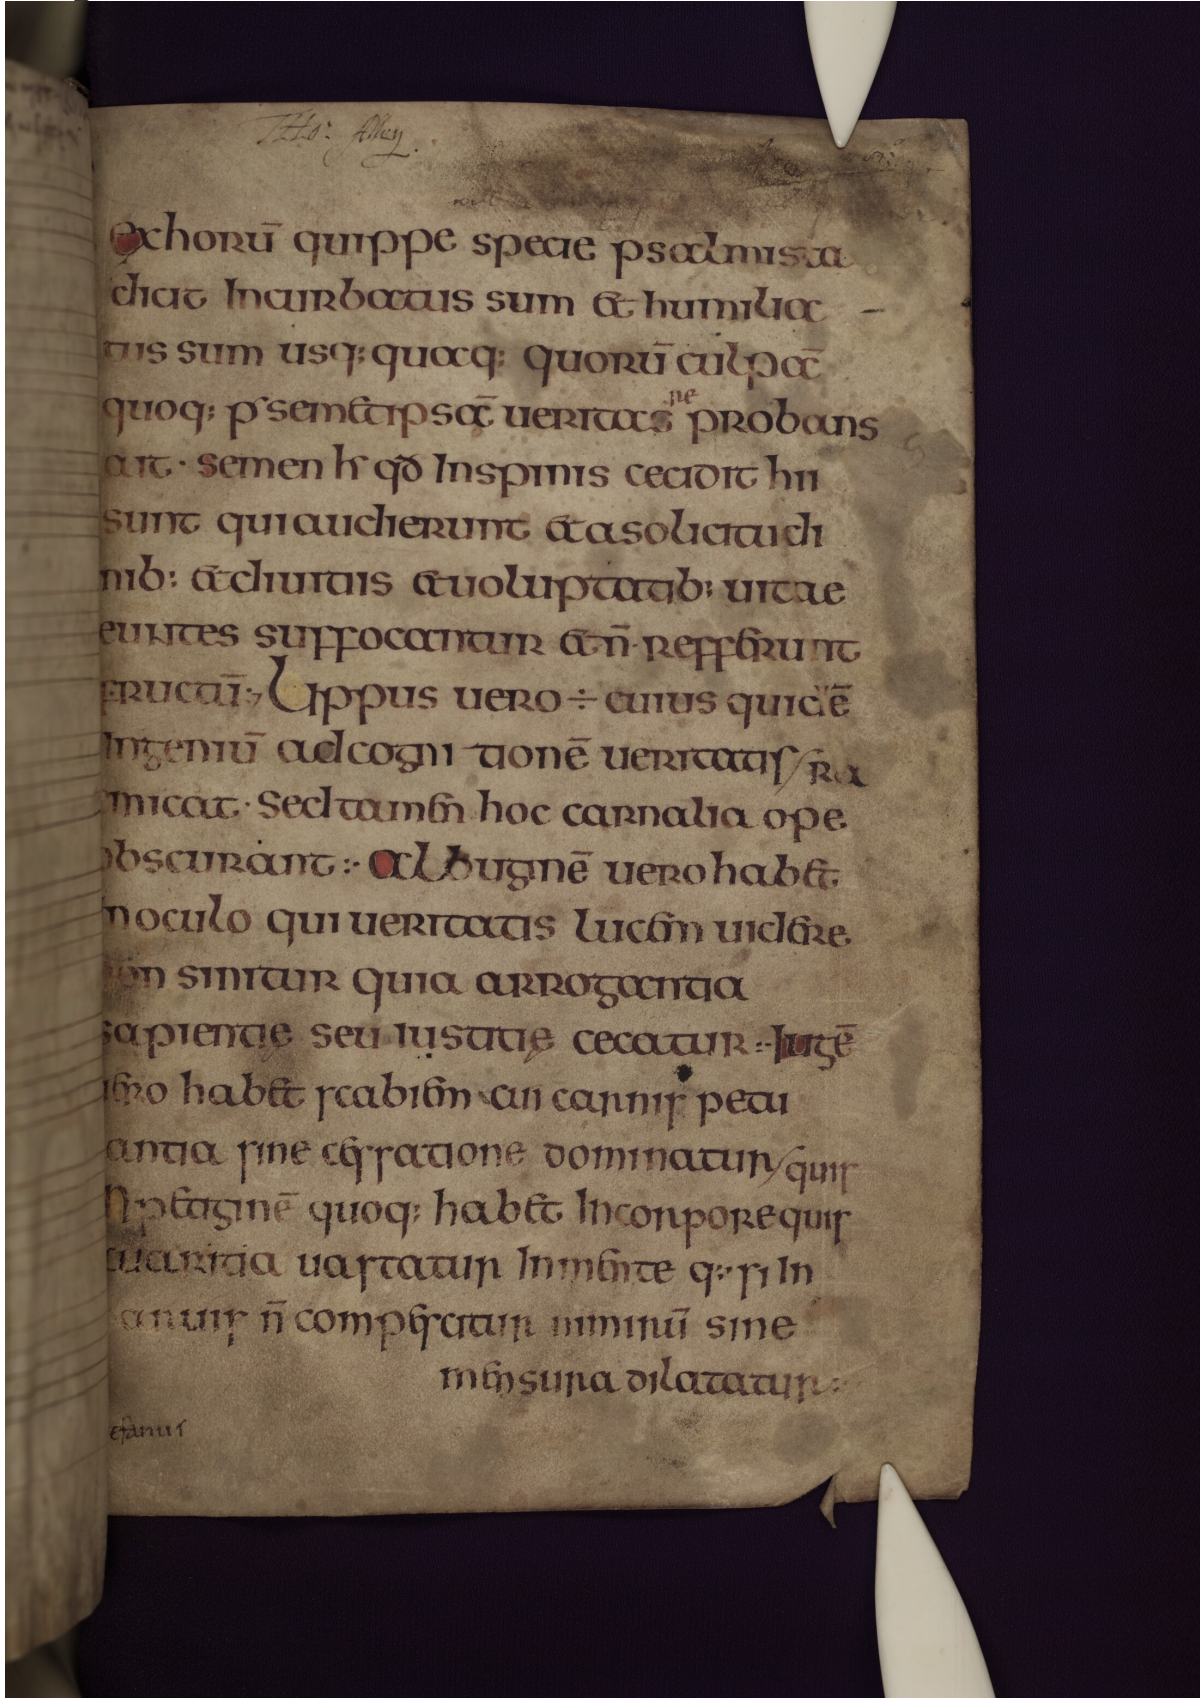 Tho: Allen.
exhorū quippe specie psalmista
dicit Incurbatus sum et humilia
tus sum usq; quaq; quorū culpā
quoq; p semetipsā ueritas ne probans
ait · semen hr qd Inspinis cecidit hii
sunt qui audierunt et a solicitudi
nib; et diuitiis et uoluptatib; uitae
euntes suffocantur et n̄ refferunt
fructū:, Lippus uero ÷ cuius quidē
Ingeniū ad cogni tionē ueritatis / ra
micat · Sed tamen hoc carnalia ope
obscurant :· alBuginē uero habet
In oculo qui ueritatis lucem uidere
non sinitur quia arrogantia
sapientię seu iustitię cecatur :· Iugē
uero habet scabiem cui carnis petu
antia sine cessatione dominatur / quis
Inpetiginē quoq; habet In corpore quis
auaritia uastatur In mente q:· si In
paruis n̄ compescitur nimirū sine
mensura dilatatur :·
efanus